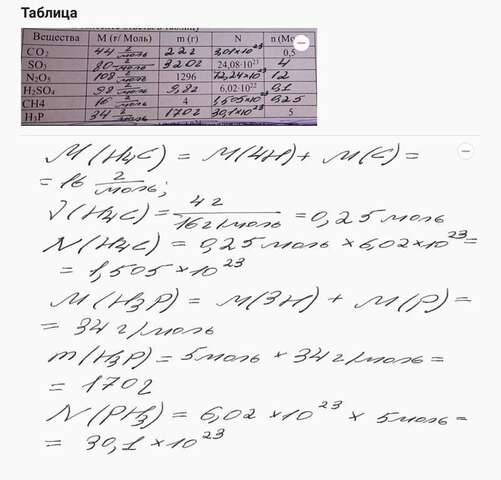 Таблица
Вещества M (г/ Моль) m (г) N n (Мо
CO2 44 г/моль 22г 3,01×10^23 0,5
SO3 80 г/моль 320г 24,08·10^23 4
N2O5 108 г/моль 1296 72,24×10^23 12
H2SO4 98 г/моль 9,8г 6,02·10^22 0,1
CH4 16 г/моль 4 1,505×10^23 0,25
H3P 34 г/моль 170г 30,1×10^23 5
M(H4C) = M(4H) + M(C) =
= 16 г/моль;
ν(H4C) = 4г/16г/моль = 0,25 моль
N(H4C) = 0,25 моль × 6,02×10^23 =
= 1,505 × 10^23
M(H3P) = M(3H) + M(P) =
= 34 г/моль
m(H3P) = 5моль × 34г/моль =
= 170г
N(PH3) = 6,02 × 10^23 × 5моль =
= 30,1 × 10^23